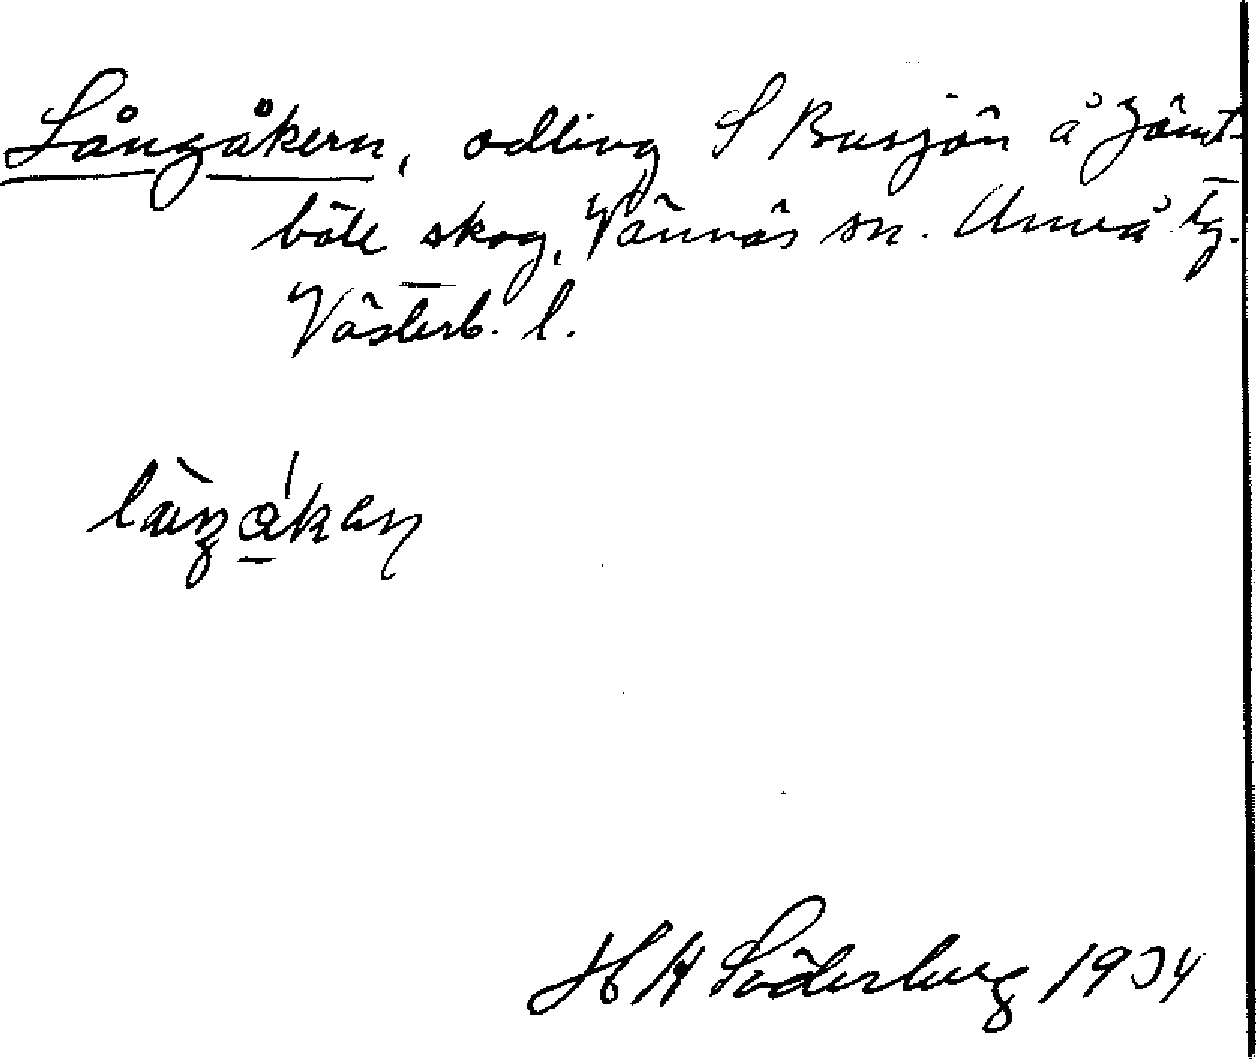 Långåkern, odling S Busjön å Jämt-
böle skog, Vännäs sn. Umeå tg.
Västerb. l.
H A Söderberg 1934